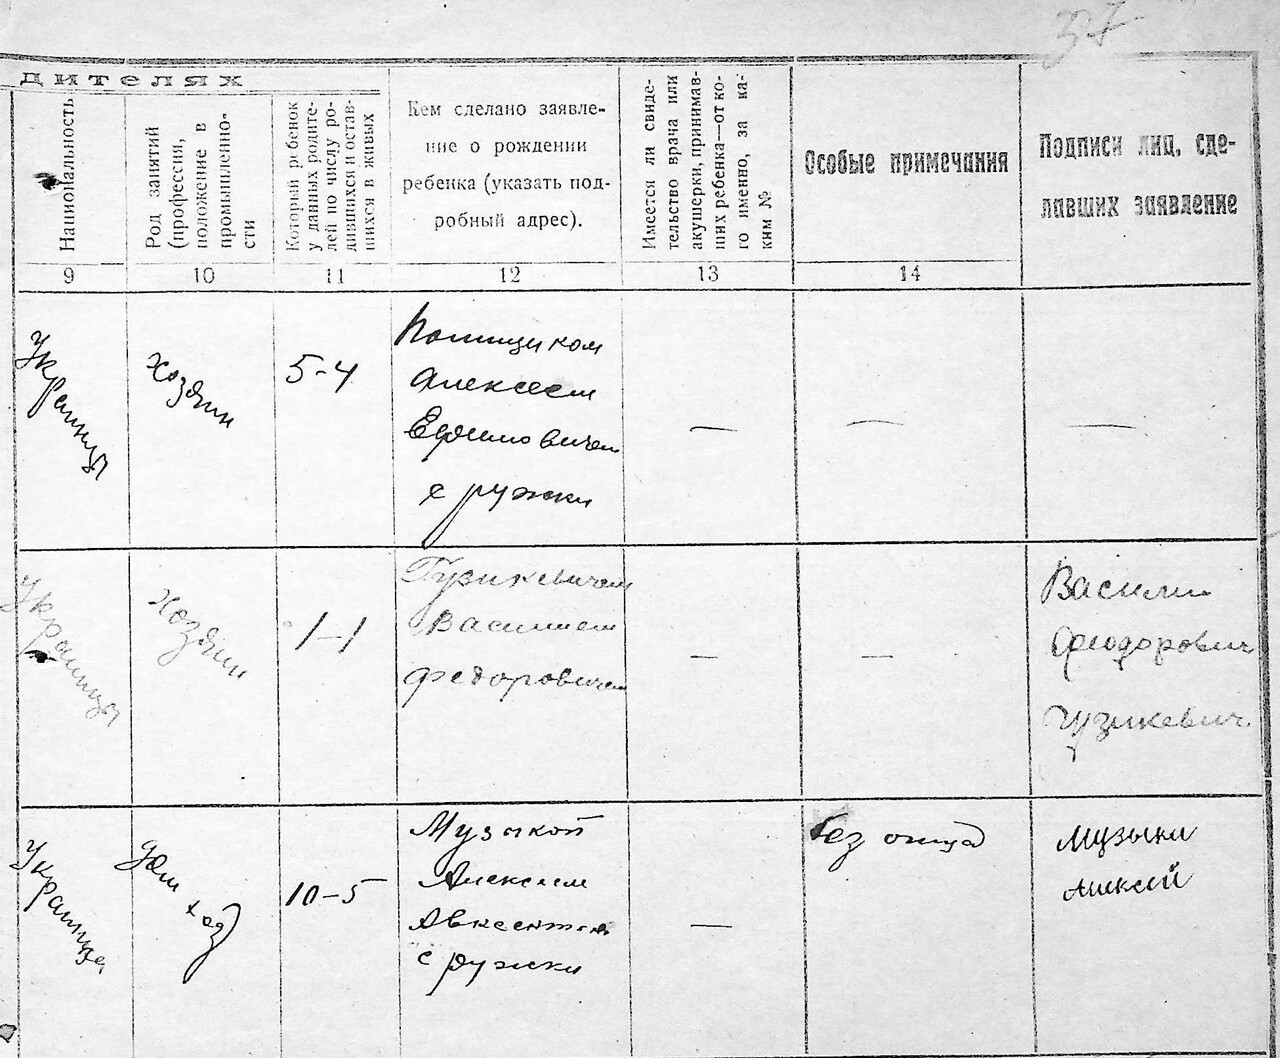 37
дителях
Национальность
Род занятий
(профессия,
положение в
промышленно-
сти
Который ребенок
у данных родите-
лей по числу ро-
дившихся и остав-
шихся в живых
Кем сделано заявле-
ние о рождении
ребенка (указать под-
робный адрес).
Имеется ли свиде-
тельство врача или
акушерки, принимав-
ших ребенка—от ко-
го именно, за ка-
ким №
Особые примечания
Подписи лиц, сде-
лавших заявление
9
10
11
12
13
14
Украинцы
Хозяин
5-4
Алексеем
Ефимовичем
с ружки
—
—
—
Украинцы
Хозяин
1-1
Гузикевичем
Василием
Федоровичем
—
—
Василий
Феодорович
Гузикевич
Дом
хоз
10-5
Музыкой
Алексеем
с ружки
—
без отца
Музыки
Алексей